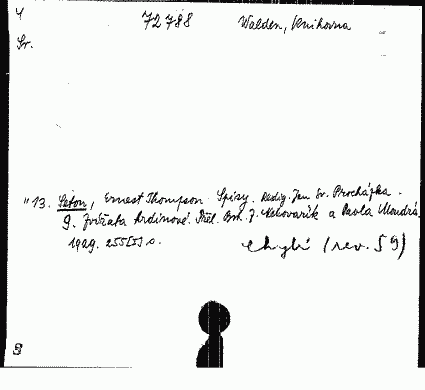 4 72788 Walden, Knihovna
Sv.
"13. Seton, Ernest Thompson Spisy. Redig. Jan Sv. Procházka.
9. Zvířata hrdinové. Přel. Ant. J. Nechovařík a Pavla Moudrá
1929. 255[I] s. chybí (rev. 59)